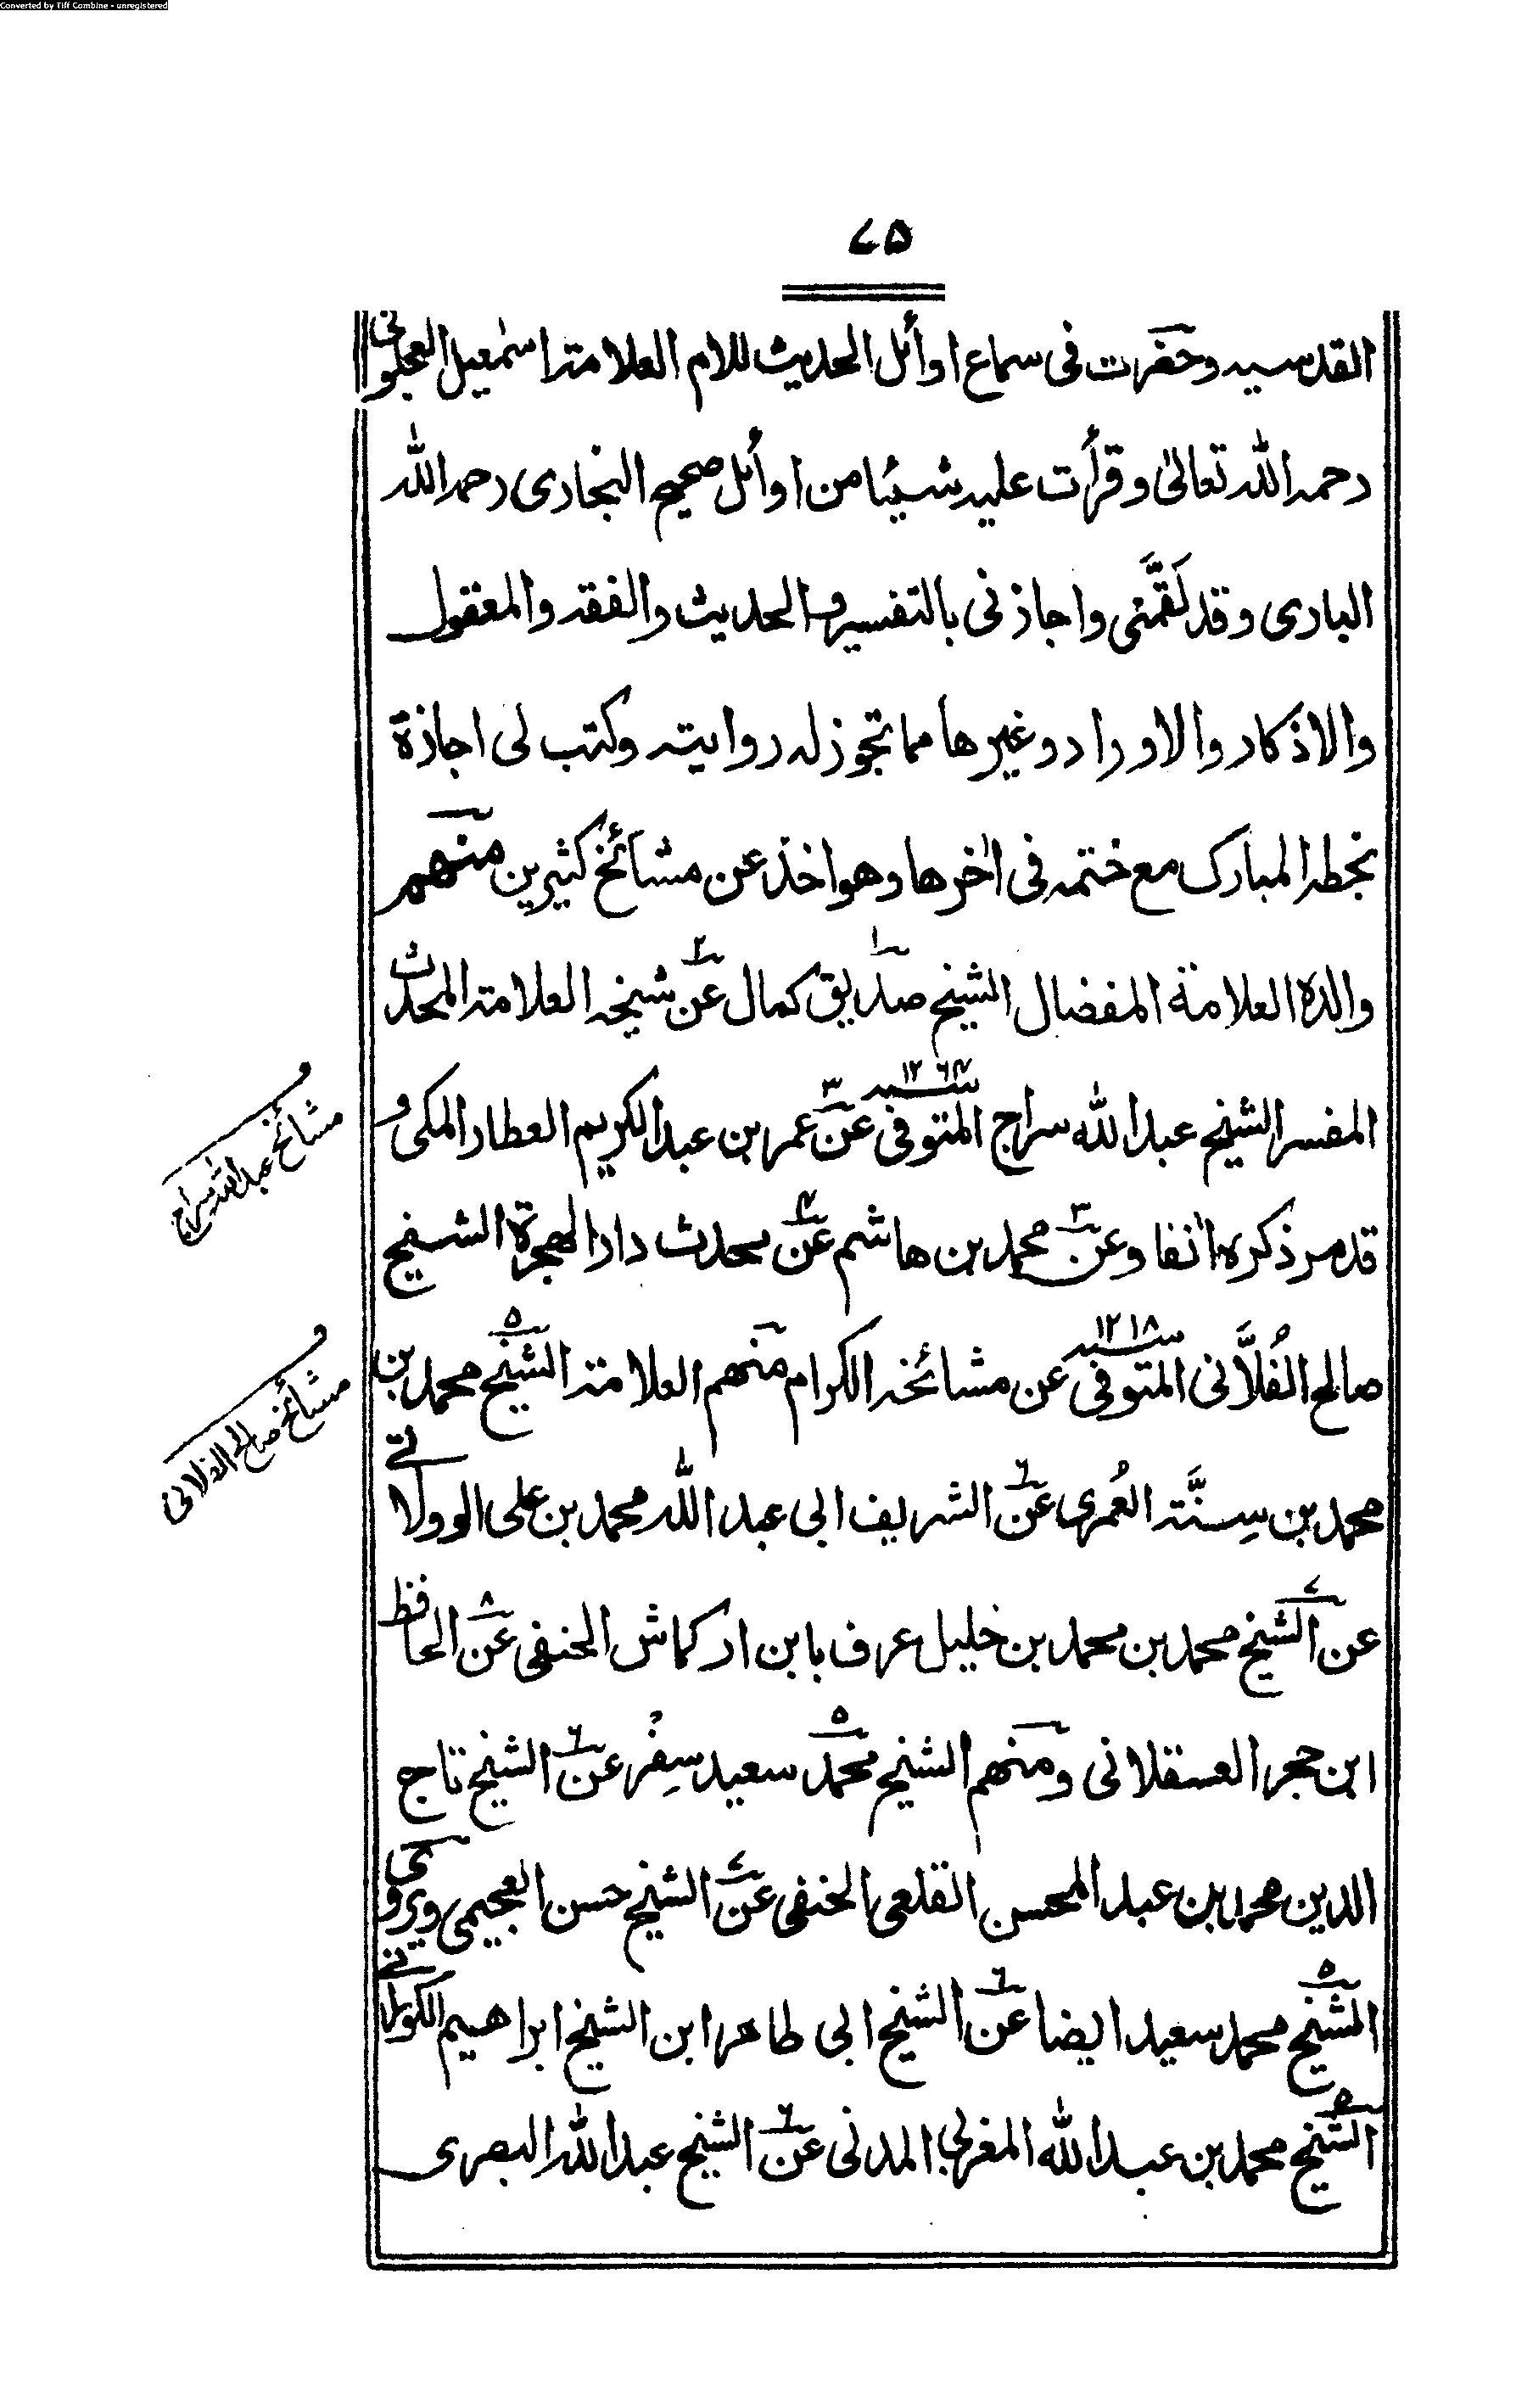 Converted by Tiff Combine - unregistered
۷۵
القدسیہ وحضرت فی سماع اوائل الحدیث للام العلامۃ اسمٰعیل العجلونی
رحمہ اللہ تعالیٰ وقرأت علیہ شیئا من اوائل صحیح البخاری رحمہ اللہ
الباری وقد لَقَّمَنی واجازنی بالتفسیر والحدیث والفقہ والمعقول
والاذکار والاوراد وغیرها مما تجوز لہ روایتہ وکتب لی اجازۃ
بخطہ المبارک مع ختمہ فی اٰخرها وهو اخذ عن مشائخ کثیرین منهم
والدہ العلامۃ المفضال الشیخ صدیق۱ کمال عن۲ شیخہ العلامۃ المحدث
المفسر الشیخ عبد اللہ سراج المتوفی سنہ ۱۲۶۴ عن۳ عمر بن عبد الکریم العطار المکی و
قد مر ذکرہ اٰنفا وعن۳ محمد بن هاشم عن۴ محدث دار الهجرۃ الشیخ
صالح الفُلَّانی المتوفی سنہ ۱۲۱۸ عن مشائخہ الکرام منهم العلامۃ الشیخ۵ محمد بن
محمد بن سِنَّۃ العُمری عن۶ الشریف ابی عبد اللہ محمد بن علی الوولاتے
عن الشیخ۷ محمد بن محمد بن خلیل عرف بابن ارکماش الحنفی عن۸ الحافظ
ابن حجر العسقلانی ومنهم الشیخ محمد۵ سعید سِفْر عن۶ الشیخ تاج
الدین محمد بن عبد المحسن القلعی الحنفی عن۷ الشیخ حسن العجیمی ویروی
الشیخ۵ محمد سعید ایضا عن۶ الشیخ ابی طاهر ابن الشیخ ابراهیم الکورانے
الشیخ۵ محمد بن عبد اللہ المغربی المدنی عن۶ الشیخ عبد اللہ البصری
مشائخ عبد اللہ سراج
مشائخ صالح الفلانی